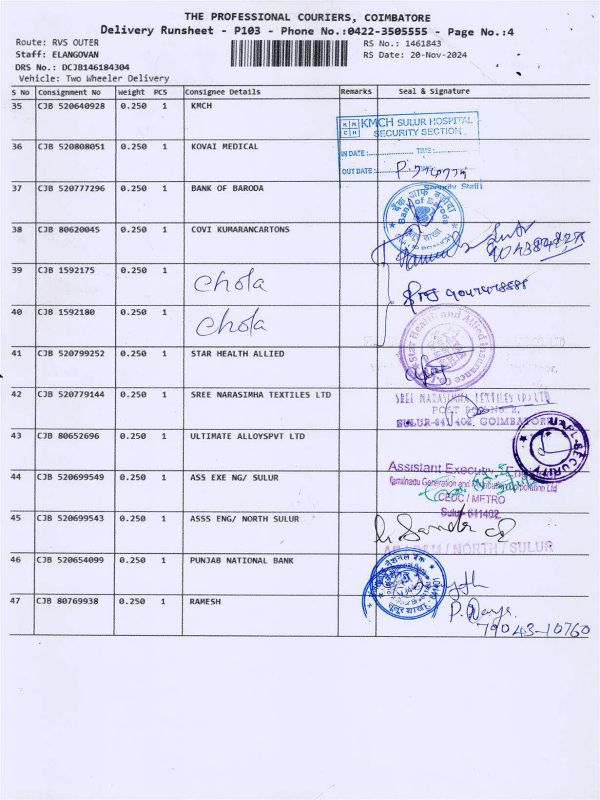 THE PROFESSIONAL COURIERS, COIMBATORE
Delivery Runsheet - P103 - Phone No.:0422-3505555 - Page No.:4
Route: RVS OUTER
RS No.: 1461843
Staff: ELANGOVAN
RS Date: 20-Nov-2024
DRS No.: DCJB146184304
Vehicle: Two Wheeler Delivery
S No Consignment No Weight PCS Consignee Details Remarks Seal & Signature
35 CJB 520640928 0.250 1 KMCH
KMCH SULUR HOSPITAL
SECURITY SECTION
IN DATE: TIME:
OUT DATE: TIME:
36 CJB 520808051 0.250 1 KOVAI MEDICAL
Security Staff
37 CJB 520777296 0.250 1 BANK OF BARODA
बैंक ऑफ़ बड़ौदा
Bank of Baroda
38 CJB 80620045 0.250 1 COVI KUMARANCARTONS
39 CJB 1592175 0.250 1 Chola
40 CJB 1592180 0.250 1 Chola
Star Health and Allied Insurance
41 CJB 520799252 0.250 1 STAR HEALTH ALLIED
42 CJB 520779144 0.250 1 SREE NARASIMHA TEXTILES LTD
SREE NARASIMHA TEXTILES (P) LTD
POST BOX No 2,
SULUR-641 402, COIMBATORE
43 CJB 80652696 0.250 1 ULTIMATE ALLOYSPVT LTD
SECURITY
44 CJB 520699549 0.250 1 ASS EXE NG/ SULUR
Assistant Executive Engineer
Tamilnadu Generation and Distribution Corporation Ltd
CEDC / METRO
Sulur-641402.
45 CJB 520699543 0.250 1 ASSS ENG/ NORTH SULUR
/ NORTH / SULUR
46 CJB 520654099 0.250 1 PUNJAB NATIONAL BANK
47 CJB 80769938 0.250 1 RAMESH
79043-10760